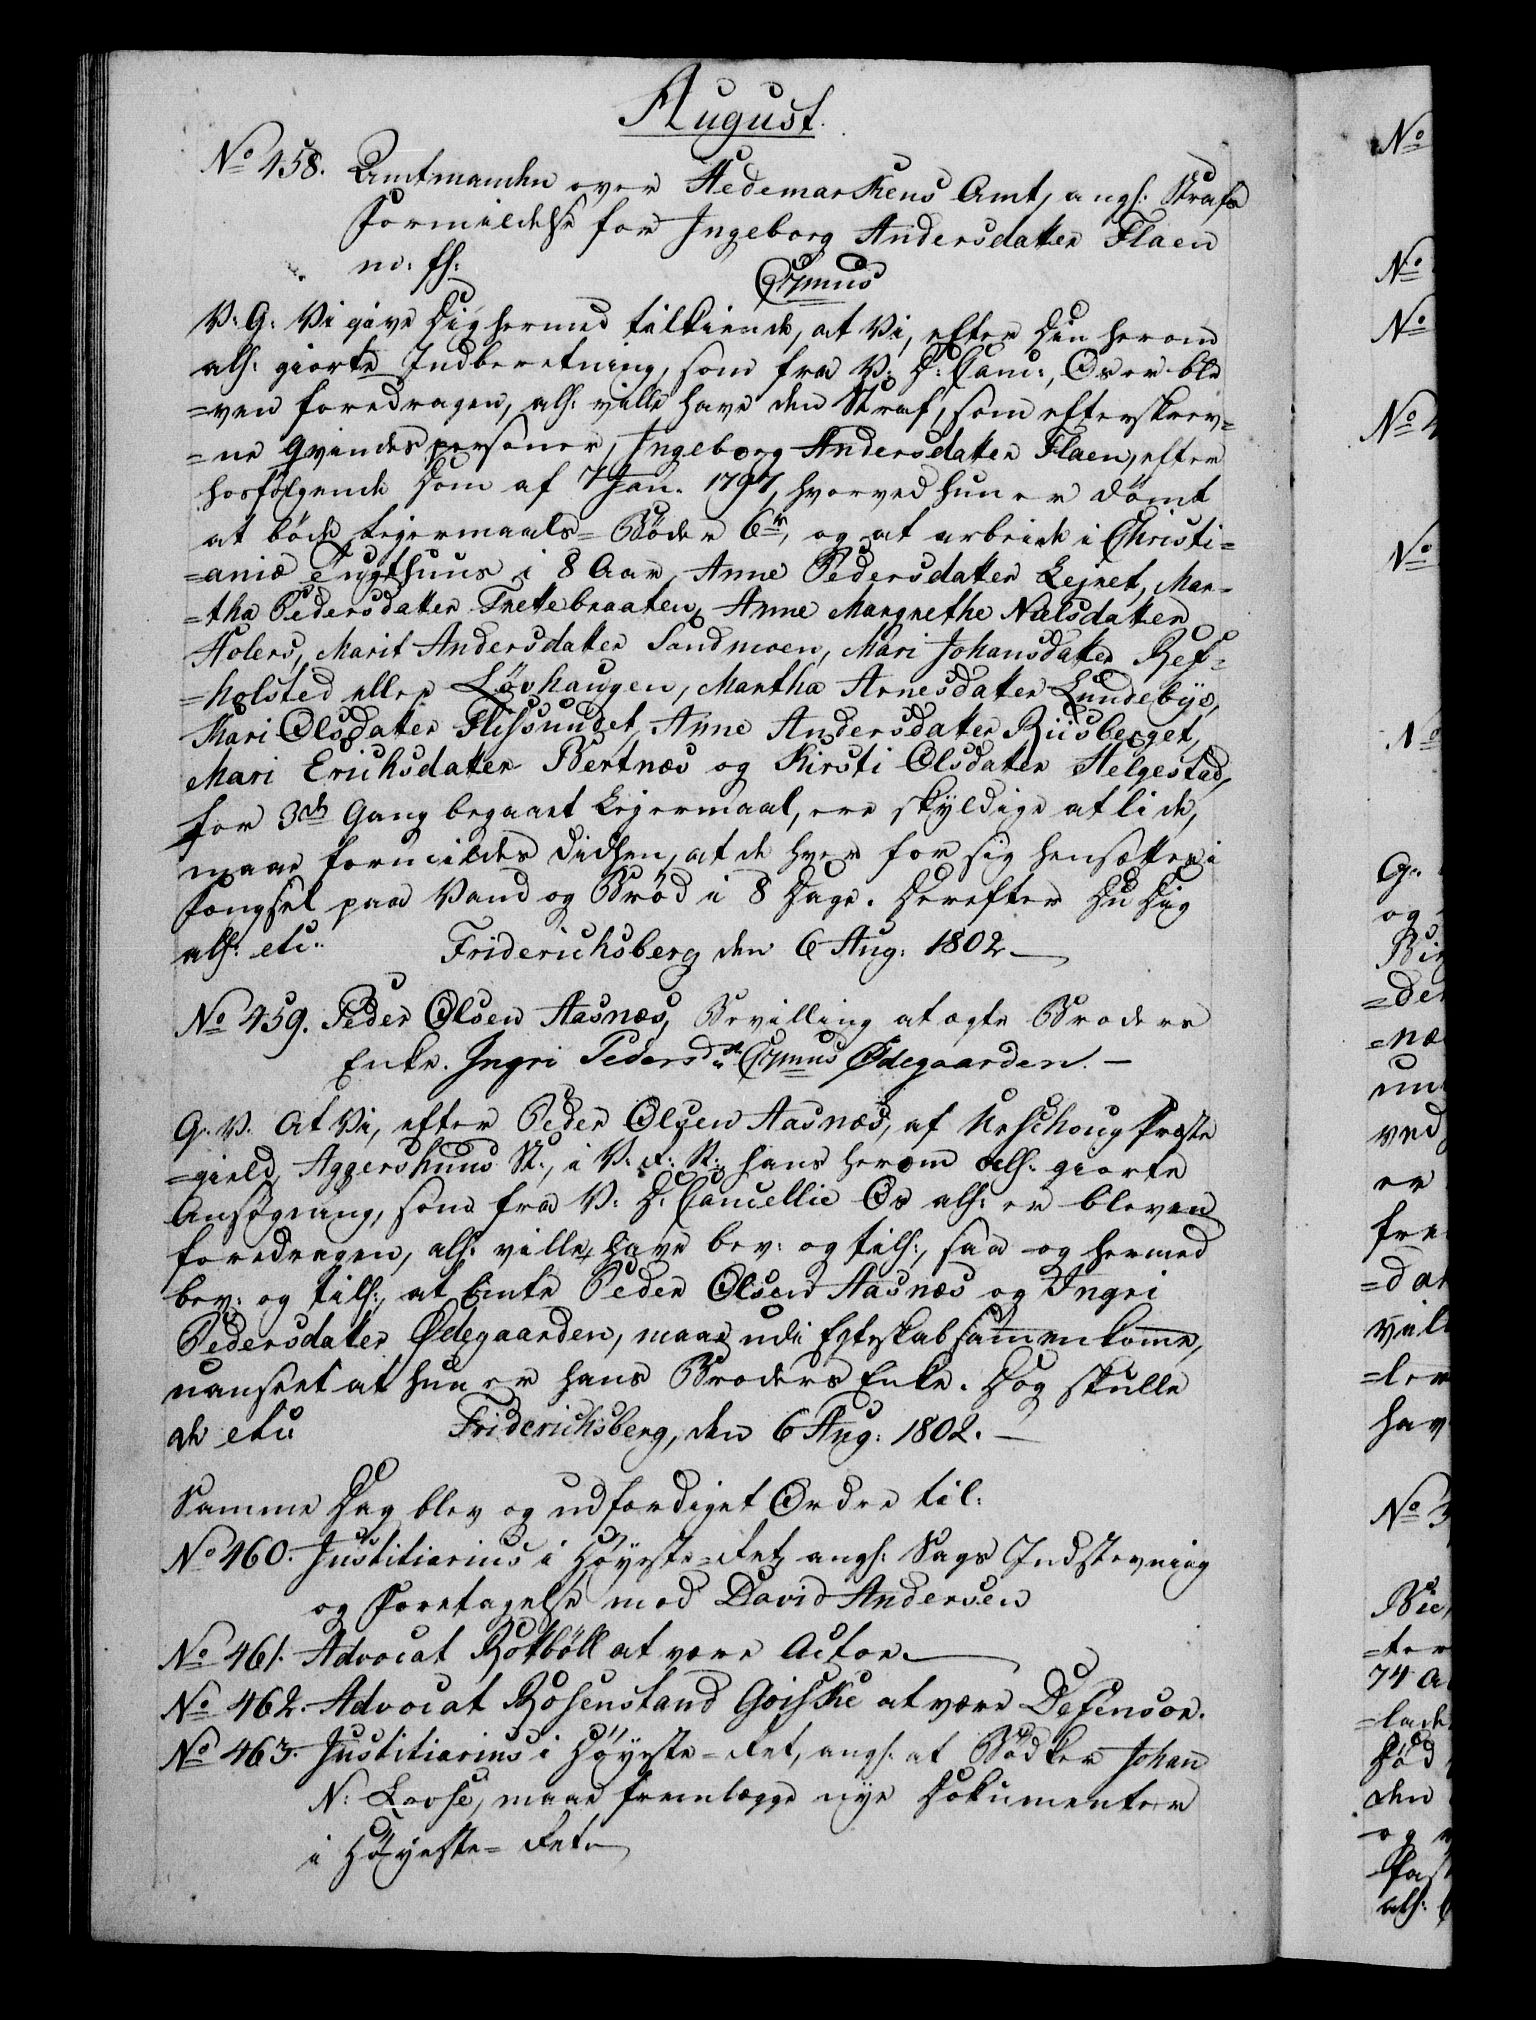 August.
No 458. Amtmanden over Hedemarkens Amt, angl: Straf¬
Formildelse for Ingeborg Andersdatter Flaen
m: fl:
Crmus
V: G: Vi give Dig hermed tilkiende, at Vi, efter din herom
all: giorte Indberetning, som fra V: D: Canc:, Os er ble
=ven foredragen, all: ville have den Straf, som efterskrev=
=ne Qvindespersoner, Ingeborg Andersdatter Flaen, efter
hosfølgende Dom af 7 Jan. 1797, hvorved hun er dømt
at bøde Lejermaals=Bøder 6 rdr, og at arbeide i Christi=
=aniæ Tugthuus i 8 Aar, Anne Pedersdatter Lejret, Mar=
=tha Pedersdatter Frettebraaten, Anne Margrethe Nielsdatter
Holers, Marit Andersdatter Sandmoen, Mari Johansdatter Ref=
=holsted eller Løvhaugen, Martha Arnesdatter Lundebye,
Mari Olsdatter Flissundet, Anne Andersdatter Riisberget,
Mari Erichsdatter Bertnæs og Kirsti Olsdatter Helgestad,
for 3de Gang begaaet Lejermaal, ere skyldige at lide,
maae formildes didhen, at de hver for sig hensættes i
Fængsel paa Vand og Brød i 8 Dage. Derefter Du Dig
all: etc: Friderichsberg den 6 Aug: 1802
No 459. Peder Olsen Aasnæs, Bevilling at ægte Broders
Enke. Ingri Pedersdr Crmus Ødegaarden.
G. V. At Vi, efter Peder Olsen Aasnæs, af Næschoug Præste
=gield, Aggershuus St:, i V: R: N:, hans herom all: giorte
Ansøgning, som fra V: D: Cancellie Os all: er bleven
foredragen, all: ville have bev: og till:, saa og hermed
bev: og till:, at bemte Peder Olsen Aasnæs og Ingri
Pedersdatter Ødegaarden, maae udi Egteskab sammenkomme,
uanseet at hun er hans Broders Enke. Dog skulle
de etc Friderichsberg, den 6 Aug: 1802.
Samme Dag blev og udfærdiget Ordre til:
No 460. Justitiarius i Høyeste=Ret, angl: Sags Indstevning
og Foretagelse mod David Andersen
No 461. Advocat Rotbøll at være Actor.
No 462. Advocat Rosenstand Goiske at være Defensor.
No 463. Justitiarius i Høyeste=Ret, angl: at Bødker Johan
N: Lovse, maae fremlægge nye Dokumenter
i Høyeste=Ret
No
No
No
No 4
No
No
G:
og
Bir
=der
=næ
un
ved
er
fre
=dat
vil
=ler
hav
No 3
Bie
=ter
74 A
=lade
Død
den
og
fast
all: